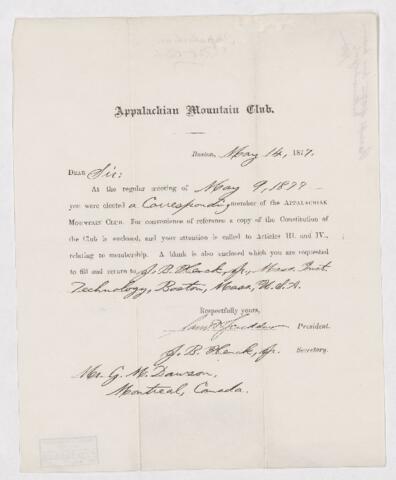 Appalachian Mountain Club.
Boston, May 14, 1877.
DEAR Sir:
At the regular meeting of May 9, 1877
you were elected a Corresponding member of the APPALACHIAN
MOUNTAIN CLUB. For convenience of reference a copy of the Constitution of
the Club is enclosed, and your attention is called to Articles III. and IV.,
relating to membership. A blank is also enclosed which you are requested
to fill and return to J. B. Henck, Jr., Mass. Inst.
Technology, Boston, Mass, U.S.A.
Respectfully yours,
President.
J. B. Henck, Jr. Secretary.
Mr. G. M. Dawson,
Montreal, Canada.